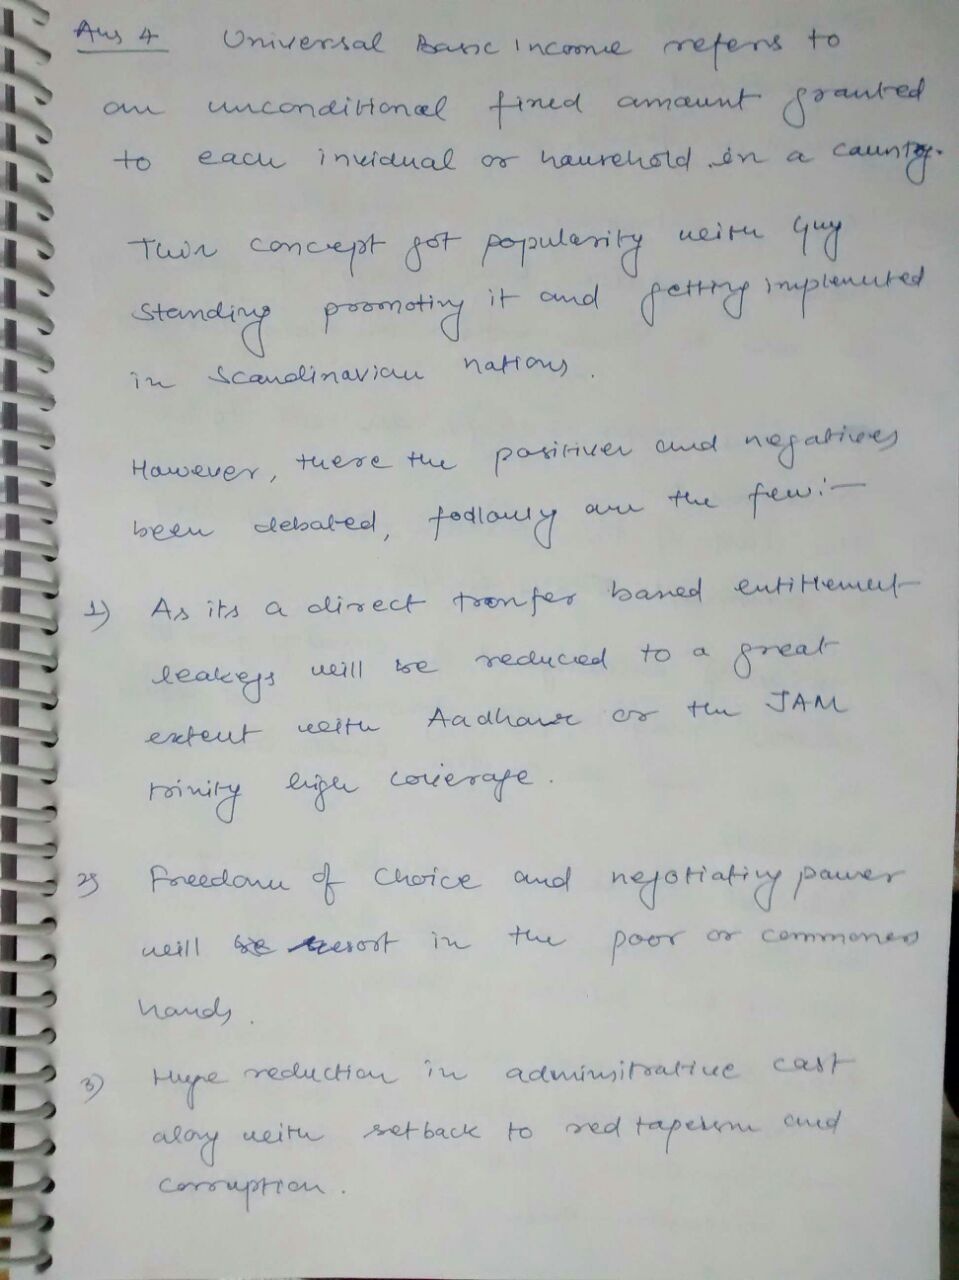 Ans 4 Universal Basic Income refers to
an unconditional fixed amount granted
to each invidual or household in a country.
This concept got popularity with Guy
Standing promoting it and getting implemented
in Scandinavian nations.
However, there the positives and negatives
been debated, are the few:-
1) As its a direct tranfer based entittlement
leakegs will be reduced to a great
extent with Aadhaar or the JAM
trinity high coverage.
2) Freedom of choice and negotiating power
will in the poor or commoners
hands.
3) Huge reduction in adminsitrative cost
along with setback to red tapeism and
corruption.